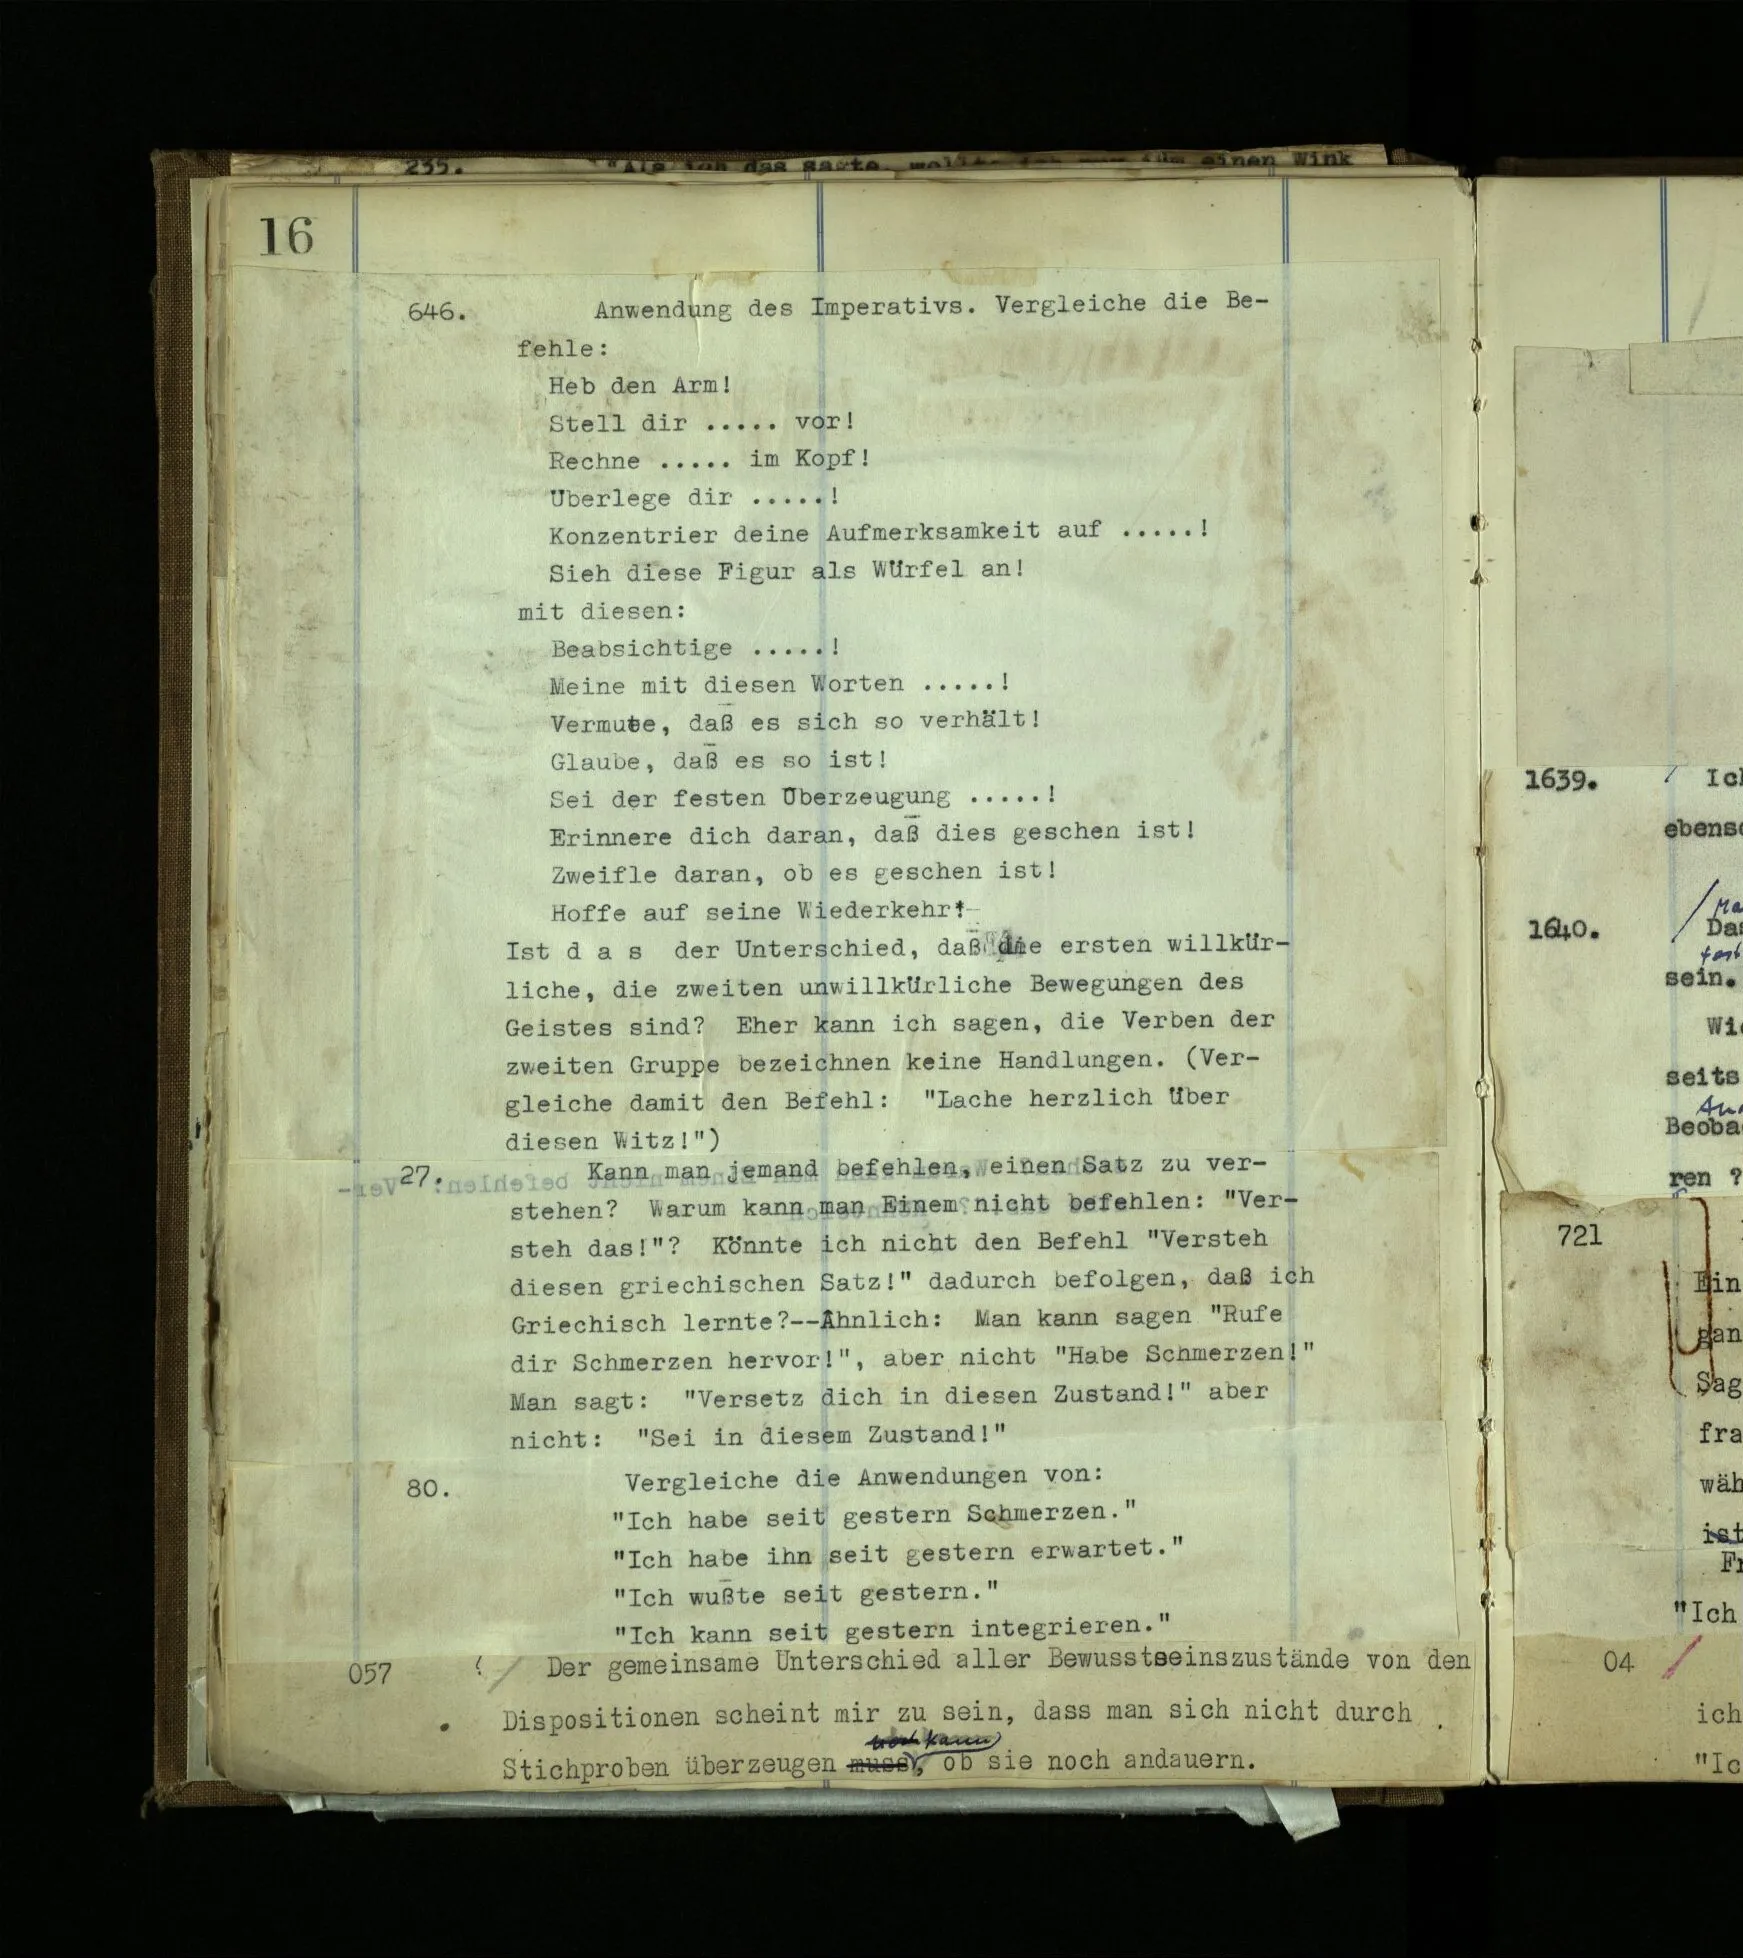 235. "Als ich das sagte, wollte ich nur einen Wink
16
646. Anwendung des Imperativs. Vergleiche die Be-
fehle:
Heb den Arm!
Stell dir ..... vor!
Rechne ..... im Kopf!
Überlege dir .....!
Konzentrier deine Aufmerksamkeit auf .....!
Sieh diese Figur als Würfel an!
mit diesen:
Beabsichtige .....!
Meine mit diesen Worten .....!
Vermute, daß es sich so verhält!
Glaube, daß es so ist!
Sei der festen Überzeugung .....!
Erinnere dich daran, daß dies geschen ist!
Zweifle daran, ob es geschen ist!
Hoffe auf seine Wiederkehr!
Ist d a s der Unterschied, daß die ersten willkür-
liche, die zweiten unwillkürliche Bewegungen des
Geistes sind? Eher kann ich sagen, die Verben der
zweiten Gruppe bezeichnen keine Handlungen. (Ver-
gleiche damit den Befehl: "Lache herzlich über
diesen Witz!")
27. Kann man jemand befehlen, einen Satz zu ver-
stehen? Warum kann man Einem nicht befehlen: "Ver-
steh das!"? Könnte ich nicht den Befehl "Versteh
diesen griechischen Satz!" dadurch befolgen, daß ich
Griechisch lernte?--Ähnlich: Man kann sagen "Rufe
dir Schmerzen hervor!", aber nicht "Habe Schmerzen!"
Man sagt: "Versetz dich in diesen Zustand!" aber
nicht: "Sei in diesem Zustand!"
80. Vergleiche die Anwendungen von:
"Ich habe seit gestern Schmerzen."
"Ich habe ihn seit gestern erwartet."
"Ich wußte seit gestern."
"Ich kann seit gestern integrieren."
057 Der gemeinsame Unterschied aller Bewusstseinszustände von den
Dispositionen scheint mir zu sein, dass man sich nicht durch
kann
Stichproben überzeugen muss, ob sie noch andauern.
1639. Ich
ebenso
1640. Das
sein.
Wie
seits
Beoba
ren ?
721
Ein
gan
Sag
fra
wäh
ist
Fr
"Ich
04
ich
"Ic